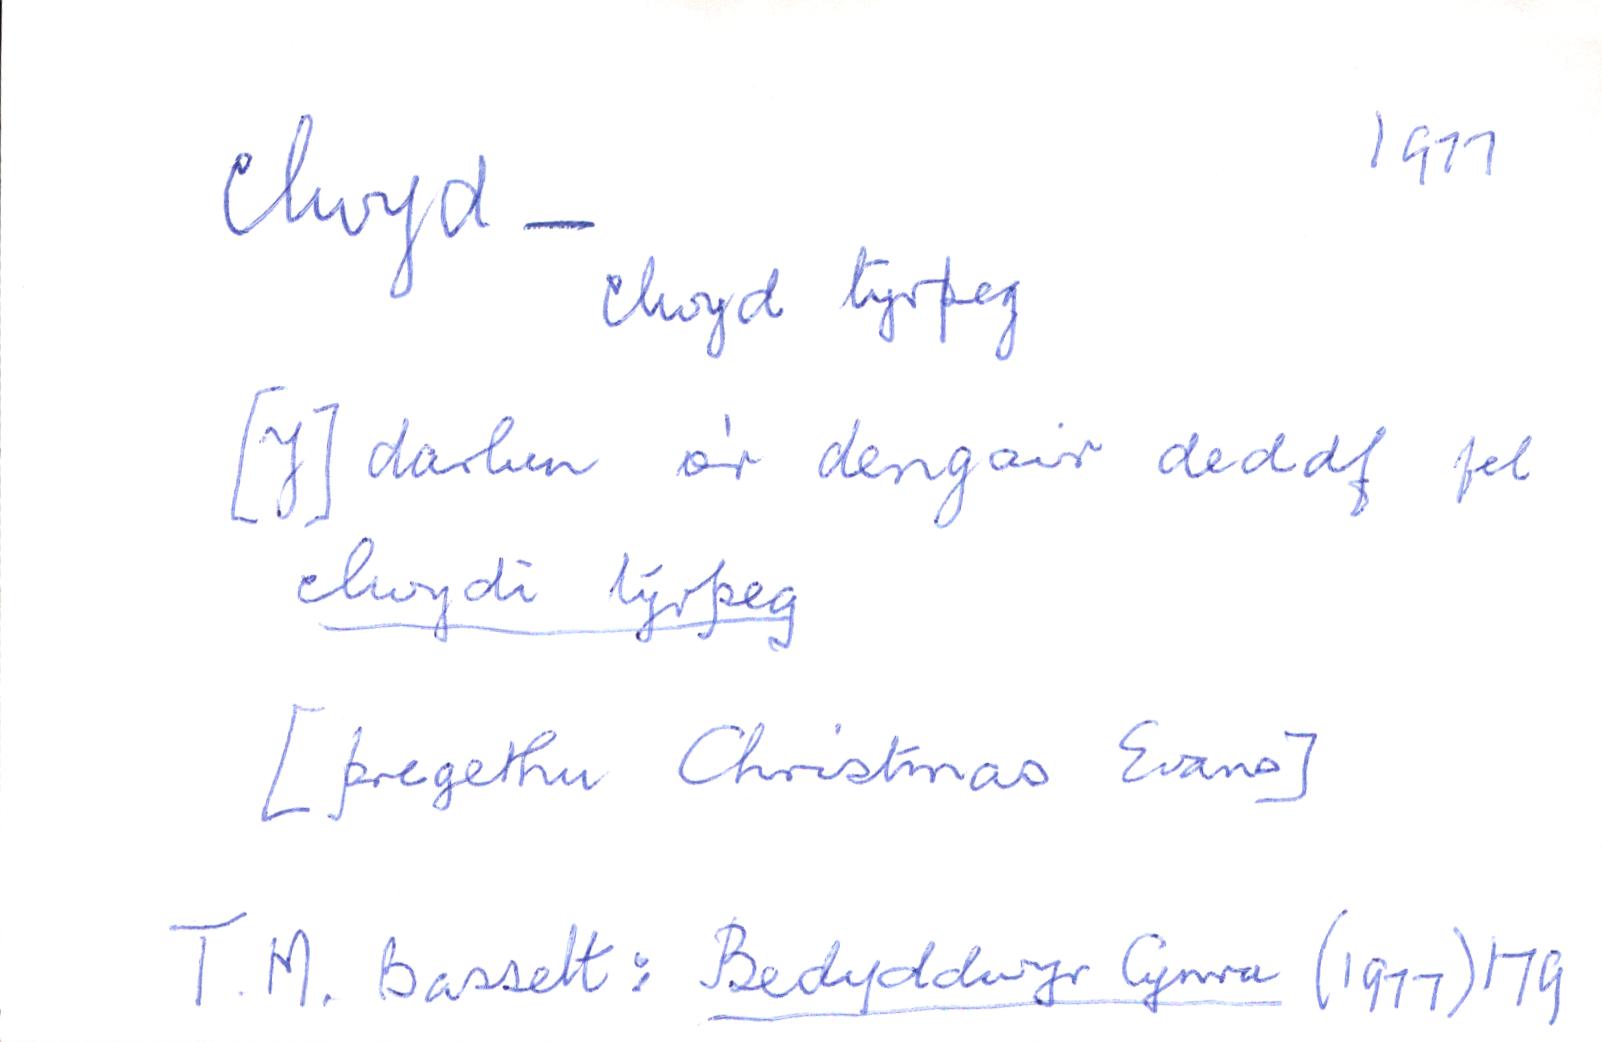 clwyd — 1977
clwyd tyrpeg
[Y] darlun o'r dengair deddf fel
clwydi tyrpeg
[pregethu Christmas Evans]
T. M. Bassett: Bedyddwyr Cymru (1977) 179